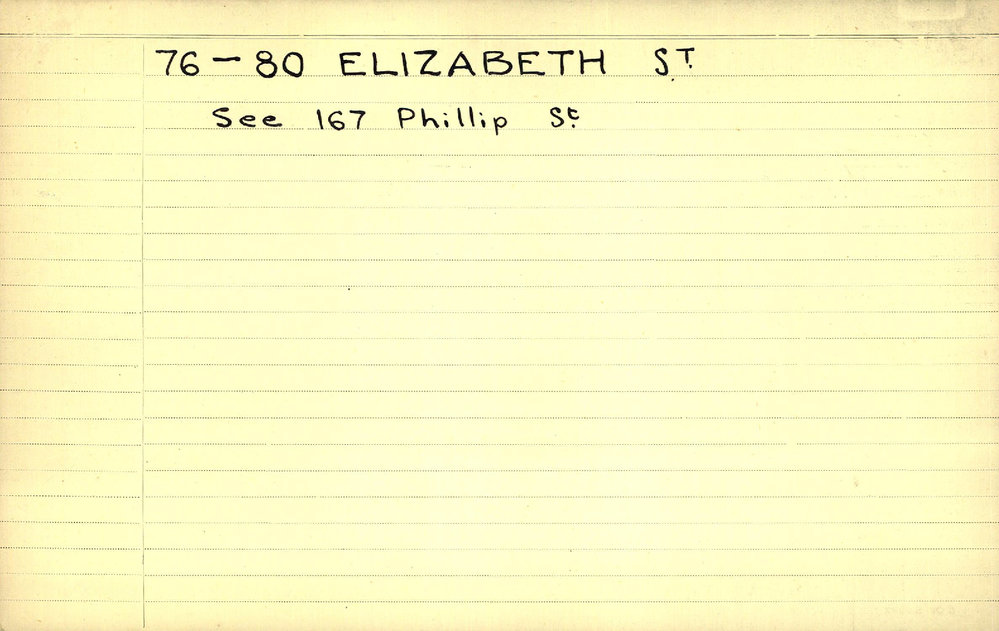 76 - 80 ELIZABETH ST.
See 167 Phillip St.